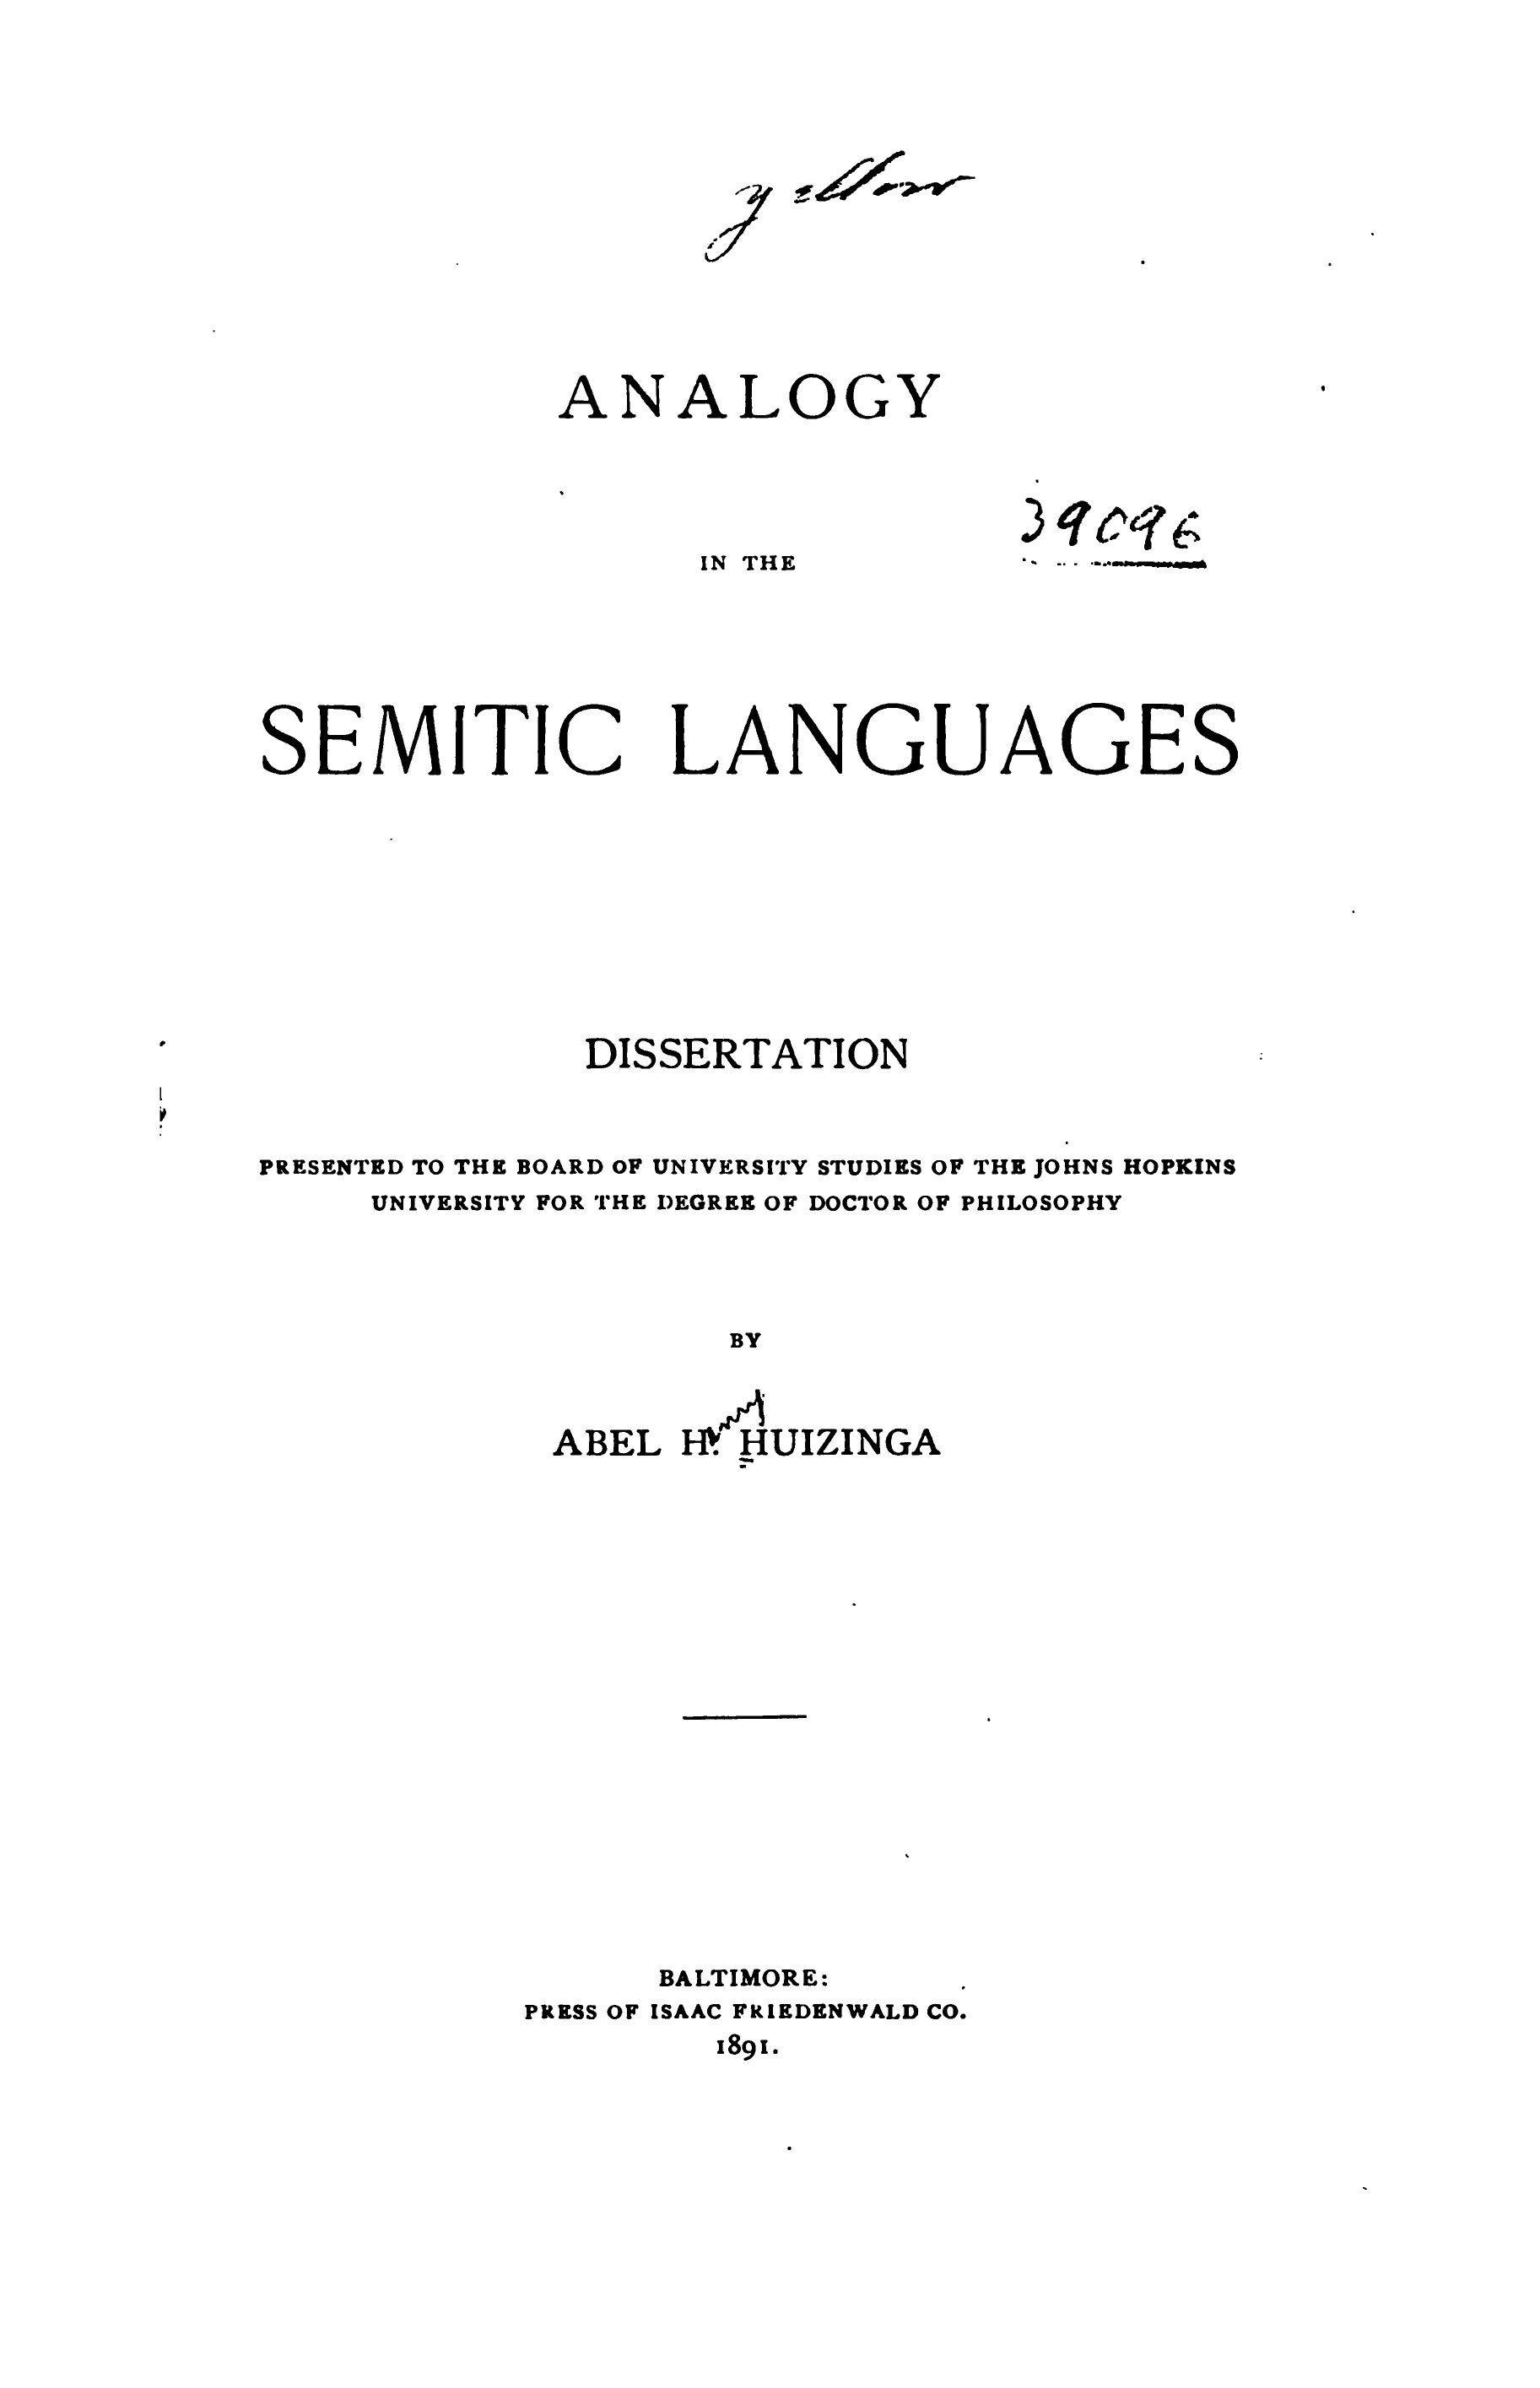 yellow
ANALOGY
39096
IN THE
SEMITIC LANGUAGES
DISSERTATION
PRESENTED TO THE BOARD OF UNIVERSITY STUDIES OF THE JOHNS HOPKINS
UNIVERSITY FOR THE DEGREE OF DOCTOR OF PHILOSOPHY
BY
ABEL H. HUIZINGA
BALTIMORE:
PRESS OF ISAAC FRIEDENWALD CO.
1891.